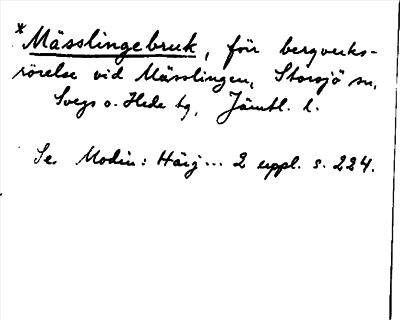 *Mässlingebruk, för bergverks-
rörelse vid Mässlingen, Storsjö sn,
Svegs o. Hede tg, Jämtl. l.
Se Modin: Härj... 2 uppl. s. 224.